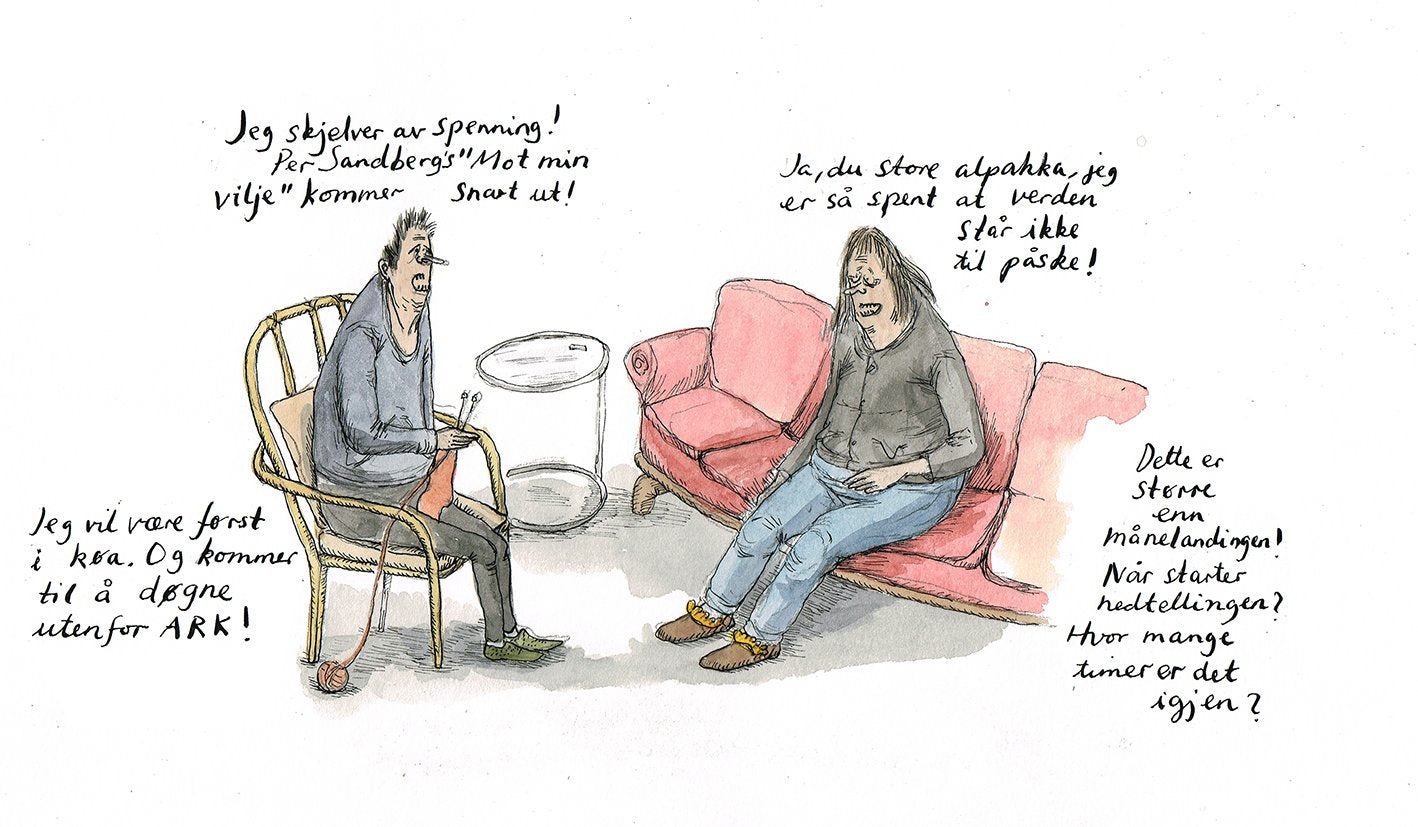 Jeg skjelver av spenning!
Per Sandberg's "Mot min
vilje" kommer snart ut!
Ja, du store alpakka, jeg
er så spent at verden
står ikke
til påske!
Jeg vil være først
i køa. Og kommer
til å døgne
utenfor ARK!
Dette er
større
enn
månelandingen!
Når starter
nedtellingen?
Hvor mange
timer er det
igjen?